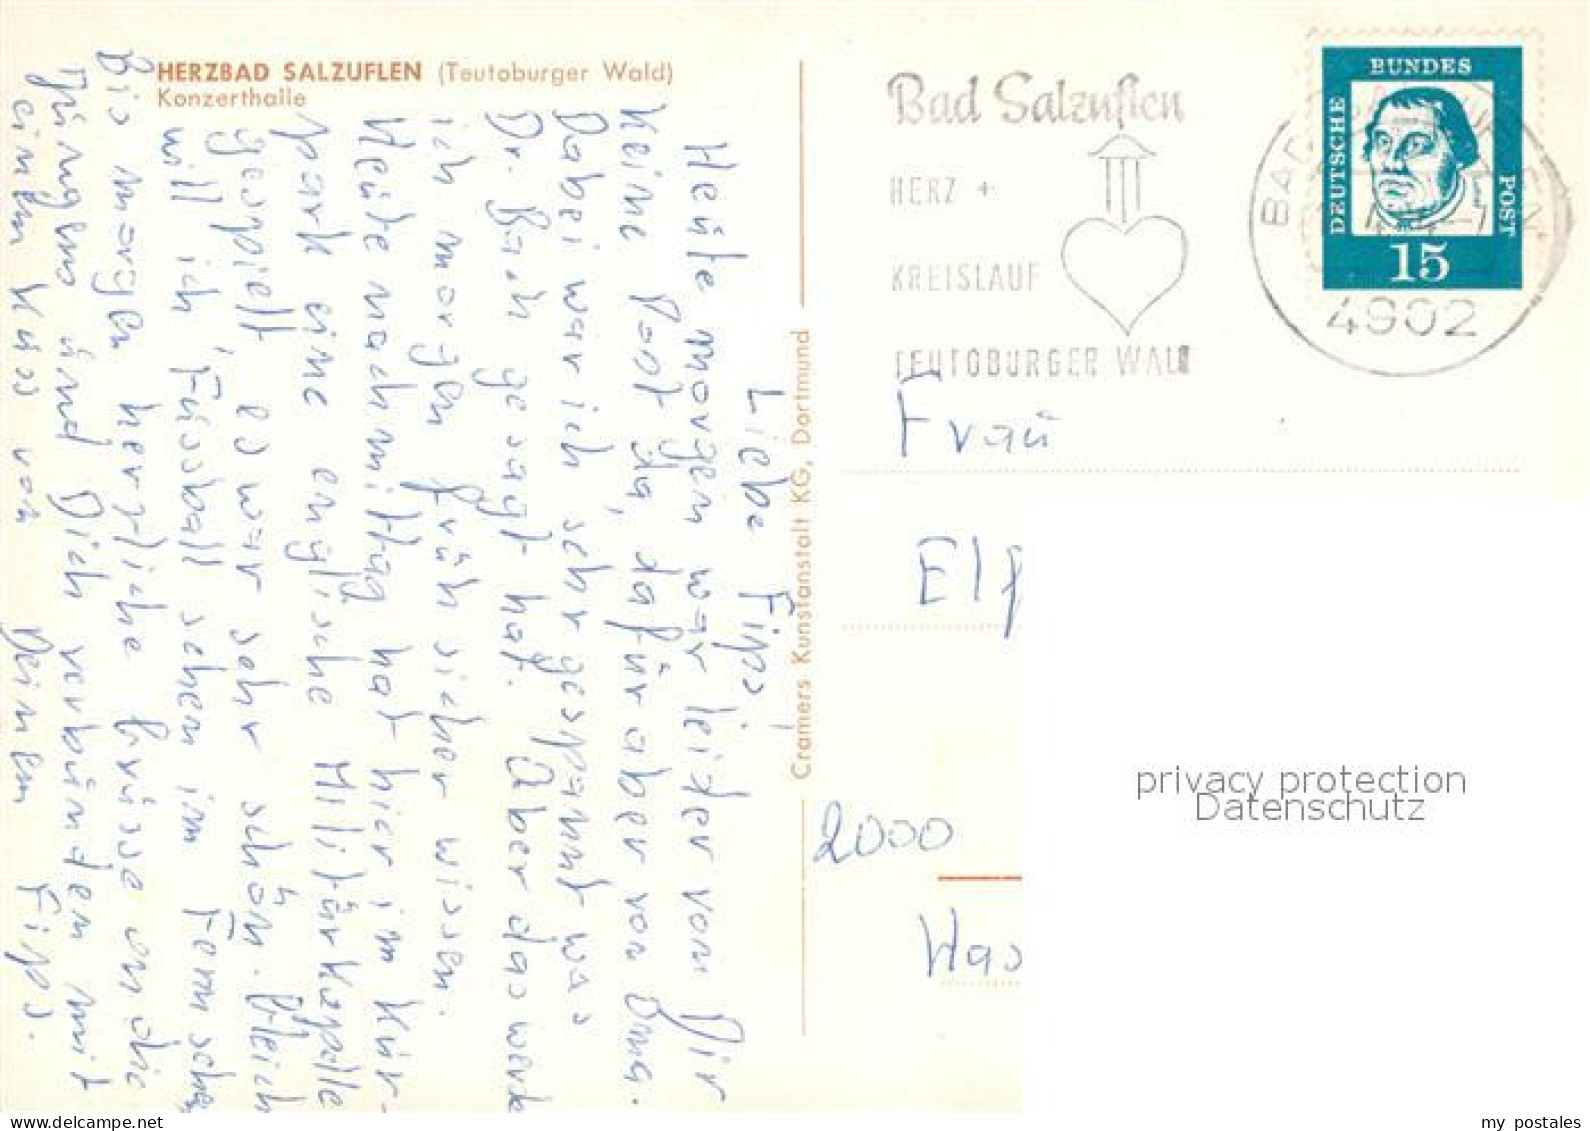 HERZBAD SALZUFLEN (Teutoburger Wald)
Konzerthalle
Liebe Fips!
Heute morgen war leider von Dir
keine Post da, dafür aber von Oma.
Dabei war ich sehr gespannt was
Dr. Bach gesagt hat. Aber das werde
ich morgen früh sicher wissen.
Heute nachmittag hat hier im Kur-
park eine englische Militärkapelle
gespielt, es war sehr schön. Gleich
will ich Fussball sehen im Fernsehen
Bis morgen herzliche Grüsse an die
Jüngens und Dich verbunden mit
einem Kuss von Deinem Fips.
Cramers Kunstanstalt KG, Dortmund
Bad Salzuflen
HERZ +
KREISLAUF
TEUTOBURGER WALD
BAD SALZUFLEN
4902
DEUTSCHE
BUNDES
POST
15
Frau
Elf
2000
Has
privacy protection
Datenschutz
my postales